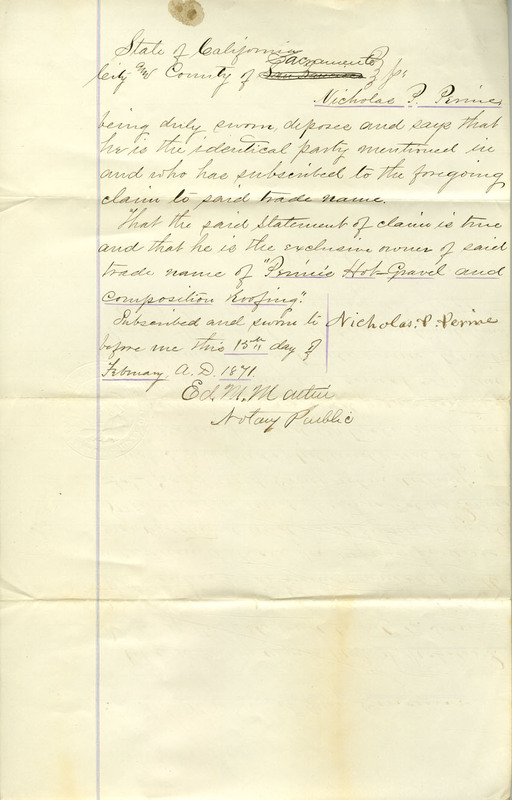 State of California
Sacramento
City and County of San Francisco } ss
Nicholas P. Perine
being duly sworn, deposes and says that
he is the identical party mentioned in
and who has subscribed to the foregoing
claim to said trade name.
That the said statement of claim is true
and that he is the exclusive owner of said
trade name of "Perine's Hot-Gravel and
Composition Roofing".
Subscribed and sworn to Nicholas. P. Perine
before me this 15th day of
February A.D. 1871.
Ed. M. Martin
Notary Public